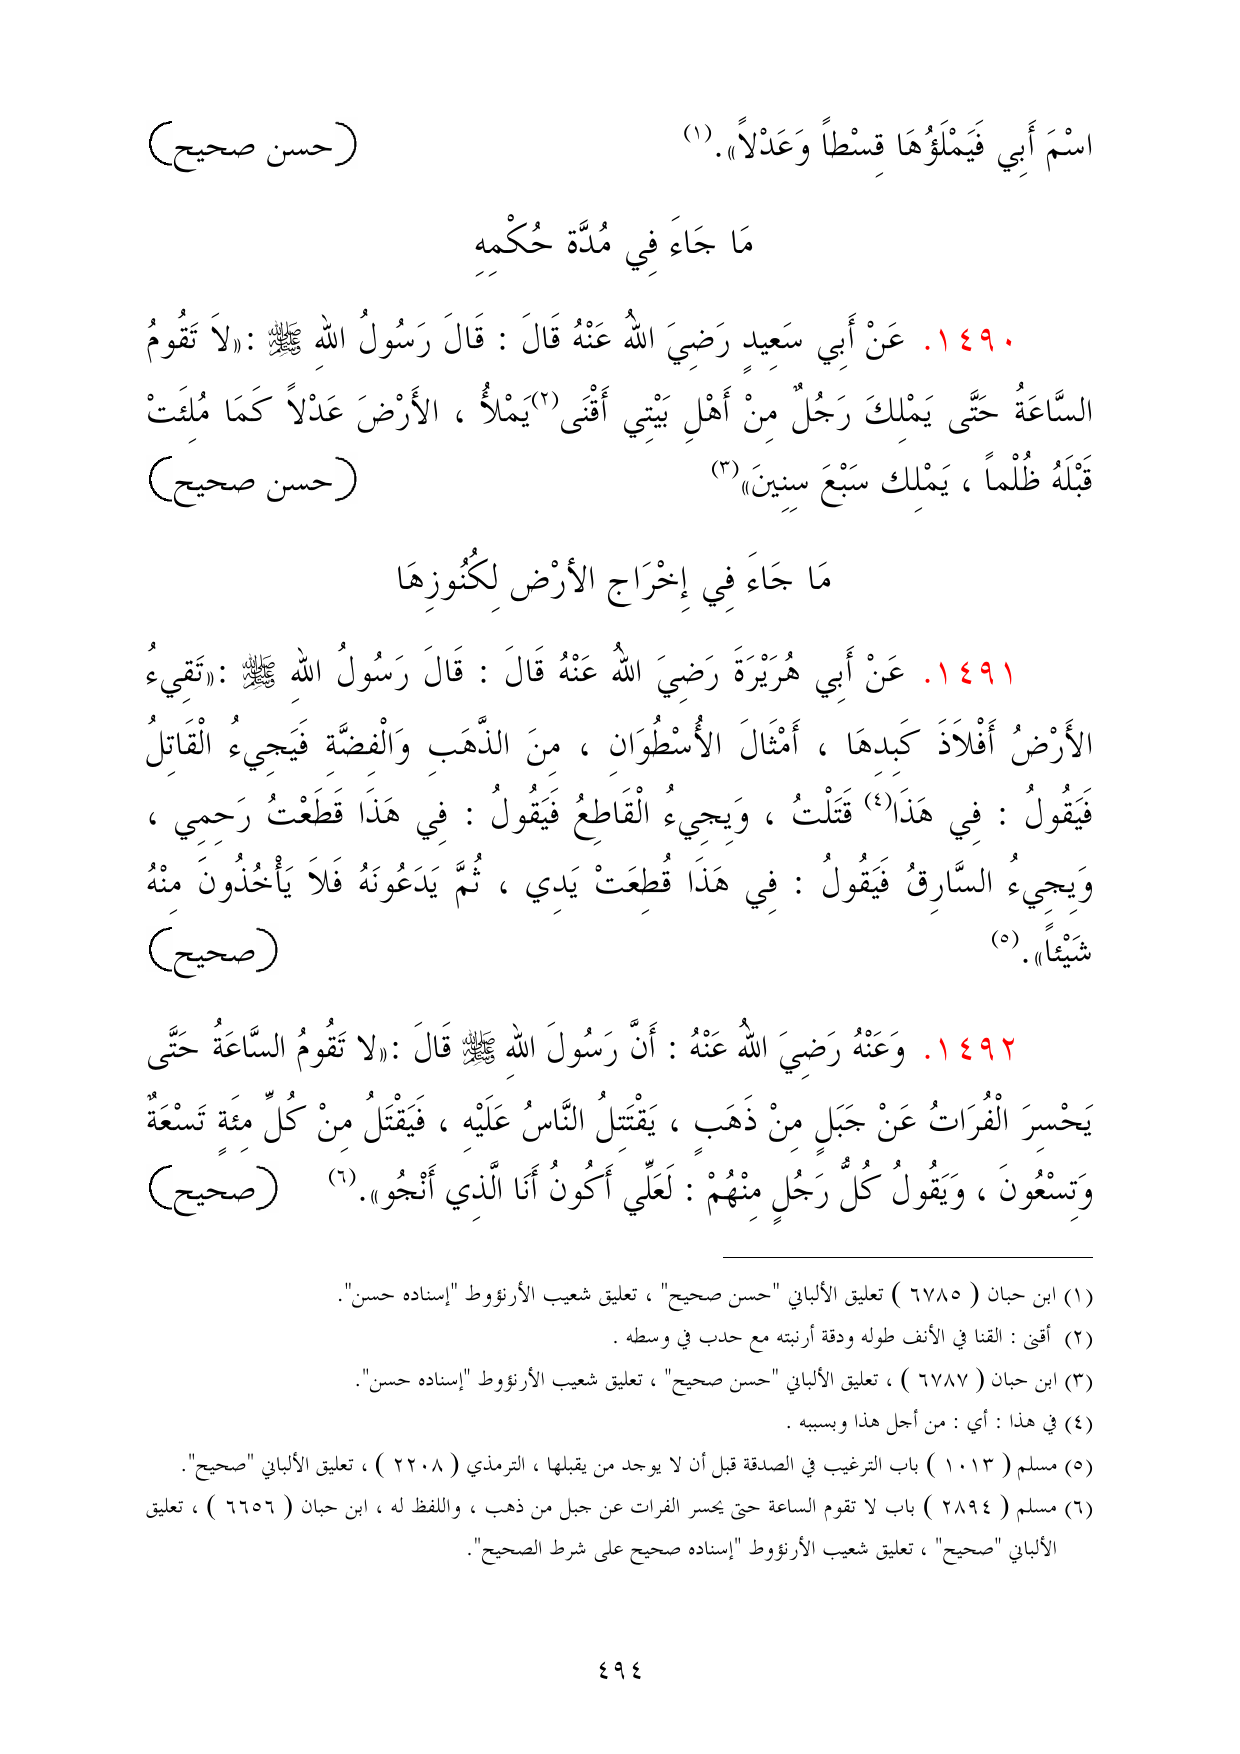 اسْمَ أَبِي فَيَمْلَؤُهَا قِسْطاً وَعَدْلاً». (١) (حسن صحيح)
مَا جَاءَ فِي مُدَّة حُكْمِهِ
١٤٩٠. عَنْ أَبِي سَعِيدٍ رَضِيَ اللهُ عَنْهُ قَالَ : قَالَ رَسُولُ اللهِ ﷺ :«لاَ تَقُومُ
السَّاعَةُ حَتَّى يَمْلِكَ رَجُلٌ مِنْ أَهْلِ بَيْتِي أَقْنَى(٢)يَمْلأُ ، الأَرْضَ عَدْلاً كَمَا مُلِئَتْ
قَبْلَهُ ظُلْماً ، يَمْلِك سَبْعَ سِنِينَ»(٣) (حسن صحيح)
مَا جَاءَ فِي إِخْرَاج الأرْض لِكُنُوزِهَا
١٤٩١. عَنْ أَبِي هُرَيْرَةَ رَضِيَ اللهُ عَنْهُ قَالَ : قَالَ رَسُولُ اللهِ ﷺ :«تَقِيءُ
الأَرْضُ أَفْلاَذَ كَبِدِهَا ، أَمْثَالَ الأُسْطُوَانِ ، مِنَ الذَّهَبِ وَالْفِضَّةِ فَيَجِيءُ الْقَاتِلُ
فَيَقُولُ : فِي هَذَا(٤) قَتَلْتُ ، وَيَجِيءُ الْقَاطِعُ فَيَقُولُ : فِي هَذَا قَطَعْتُ رَحِمِي ،
وَيَجِيءُ السَّارِقُ فَيَقُولُ : فِي هَذَا قُطِعَتْ يَدِي ، ثُمَّ يَدَعُونَهُ فَلاَ يَأْخُذُونَ مِنْهُ
شَيْئاً». (٥) (صحيح)
١٤٩٢. وَعَنْهُ رَضِيَ اللهُ عَنْهُ : أَنَّ رَسُولَ اللهِ ﷺ قَالَ :«لا تَقُومُ السَّاعَةُ حَتَّى
يَحْسِرَ الْفُرَاتُ عَنْ جَبَلٍ مِنْ ذَهَبٍ ، يَقْتَتِلُ النَّاسُ عَلَيْهِ ، فَيَقْتَلُ مِنْ كُلِّ مِئَةٍ تَسْعَةٌ
وَتِسْعُونَ ، وَيَقُولُ كُلُّ رَجُلٍ مِنْهُمْ : لَعَلِّي أَكُونُ أَنَا الَّذِي أَنْجُو». (٦) (صحيح)
(١) ابن حبان ( ٦٧٨٥ ) تعليق الألباني "حسن صحيح" ، تعليق شعيب الأرنؤوط "إسناده حسن".
(٢) أقنى : القنا في الأنف طوله ودقة أرنبته مع حدب في وسطه .
(٣) ابن حبان ( ٦٧٨٧ ) ، تعليق الألباني "حسن صحيح" ، تعليق شعيب الأرنؤوط "إسناده حسن".
(٤) في هذا : أي : من أجل هذا وبسببه .
(٥) مسلم ( ١٠١٣ ) باب الترغيب في الصدقة قبل أن لا يوجد من يقبلها ، الترمذي ( ٢٢٠٨ ) ، تعليق الألباني "صحيح".
(٦) مسلم ( ٢٨٩٤ ) باب لا تقوم الساعة حتى يحسر الفرات عن جبل من ذهب ، واللفظ له ، ابن حبان ( ٦٦٥٦ ) ، تعليق
الألباني "صحيح" ، تعليق شعيب الأرنؤوط "إسناده صحيح على شرط الصحيح".
٤٩٤